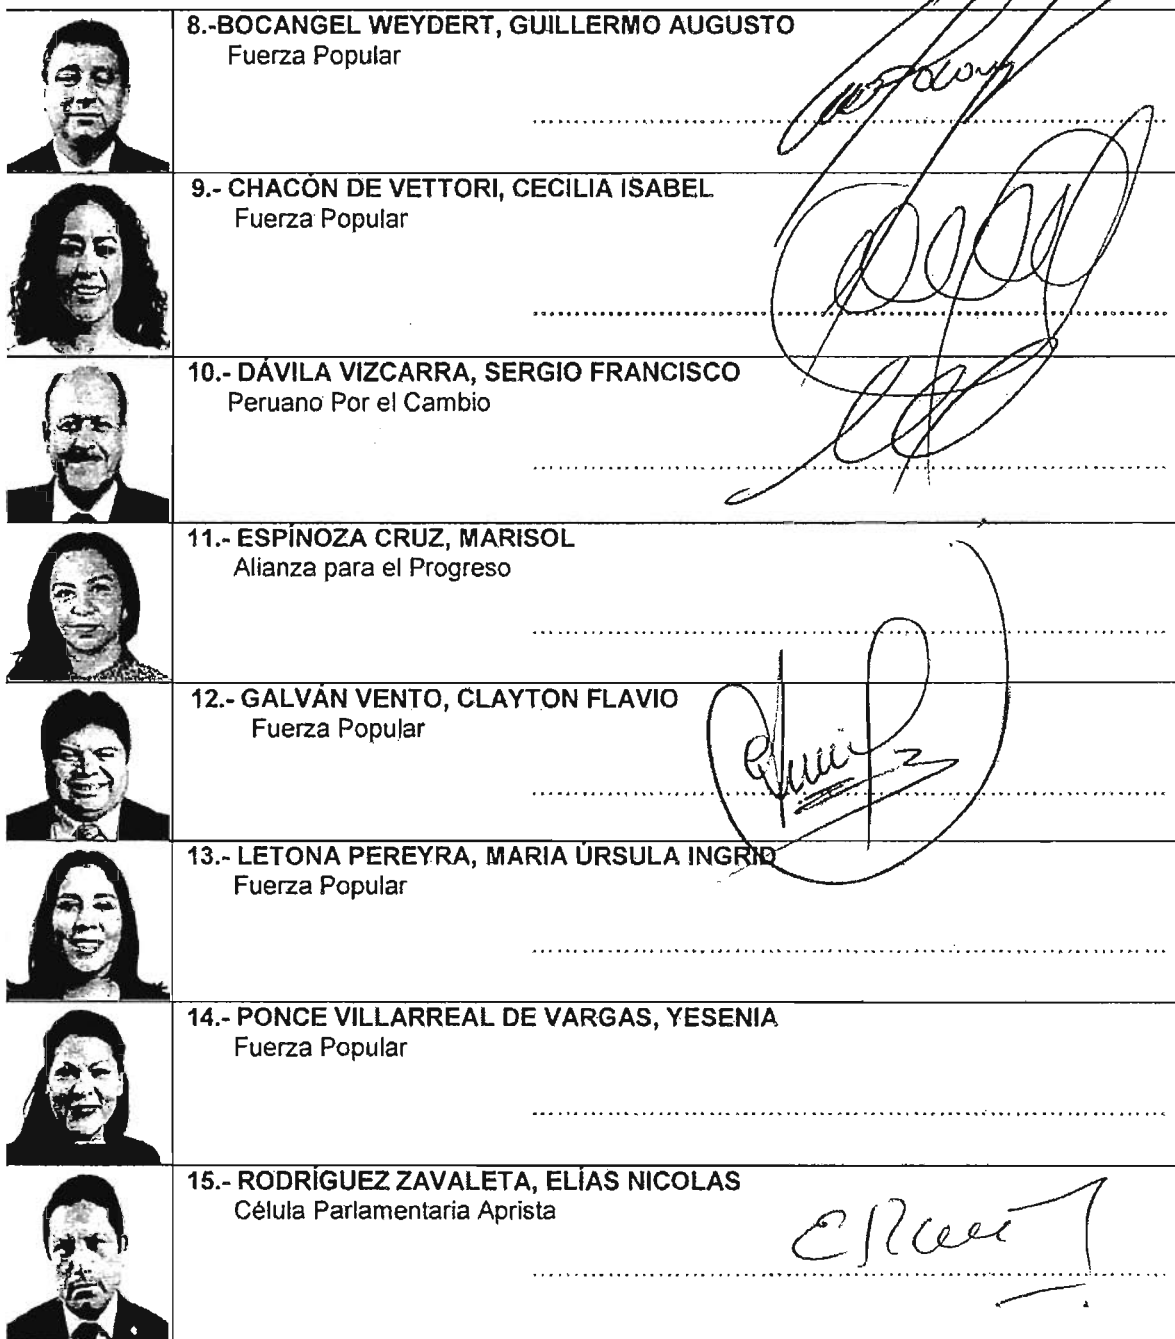 8.-BOCANGEL WEYDERT, GUILLERMO AUGUSTO
Fuerza Popular
9.- CHACÓN DE VETTORI, CECILIA ISABEL
Fuerza Popular
10.- DÁVILA VIZCARRA, SERGIO FRANCISCO
Peruano Por el Cambio
11.- ESPINOZA CRUZ, MARISOL
Alianza para el Progreso
12.- GALVÁN VENTO, CLAYTON FLAVIO
Fuerza Popular
13.- LETONA PEREYRA, MARIA ÚRSULA INGRID
Fuerza Popular
14.- PONCE VILLARREAL DE VARGAS, YESENIA
Fuerza Popular
15.- RODRÍGUEZ ZAVALETA, ELÍAS NICOLAS
Célula Parlamentaria Aprista